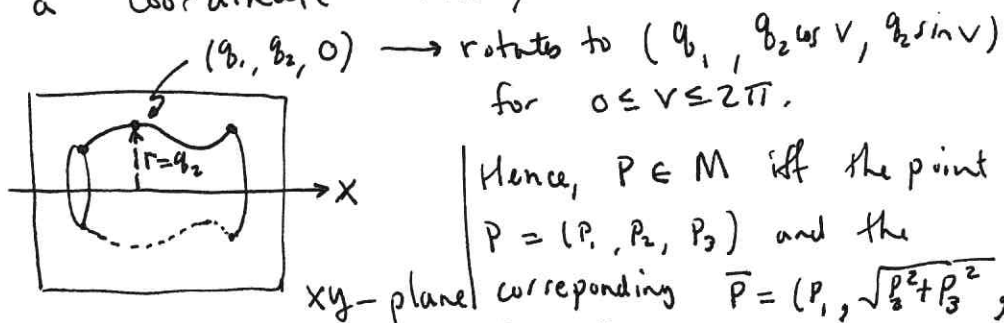 a coordinate
(q₁, q₂, 0) → rotates to (q₁, q₂ cos v, q₂ sin v)
for 0 ≤ v ≤ 2π.
r=q₂
x
xy-plane
Hence, P ∈ M iff the point
P = (P₁, P₂, P₃) and the
correponding P̅ = (P₁, √P₃²+P₃²,